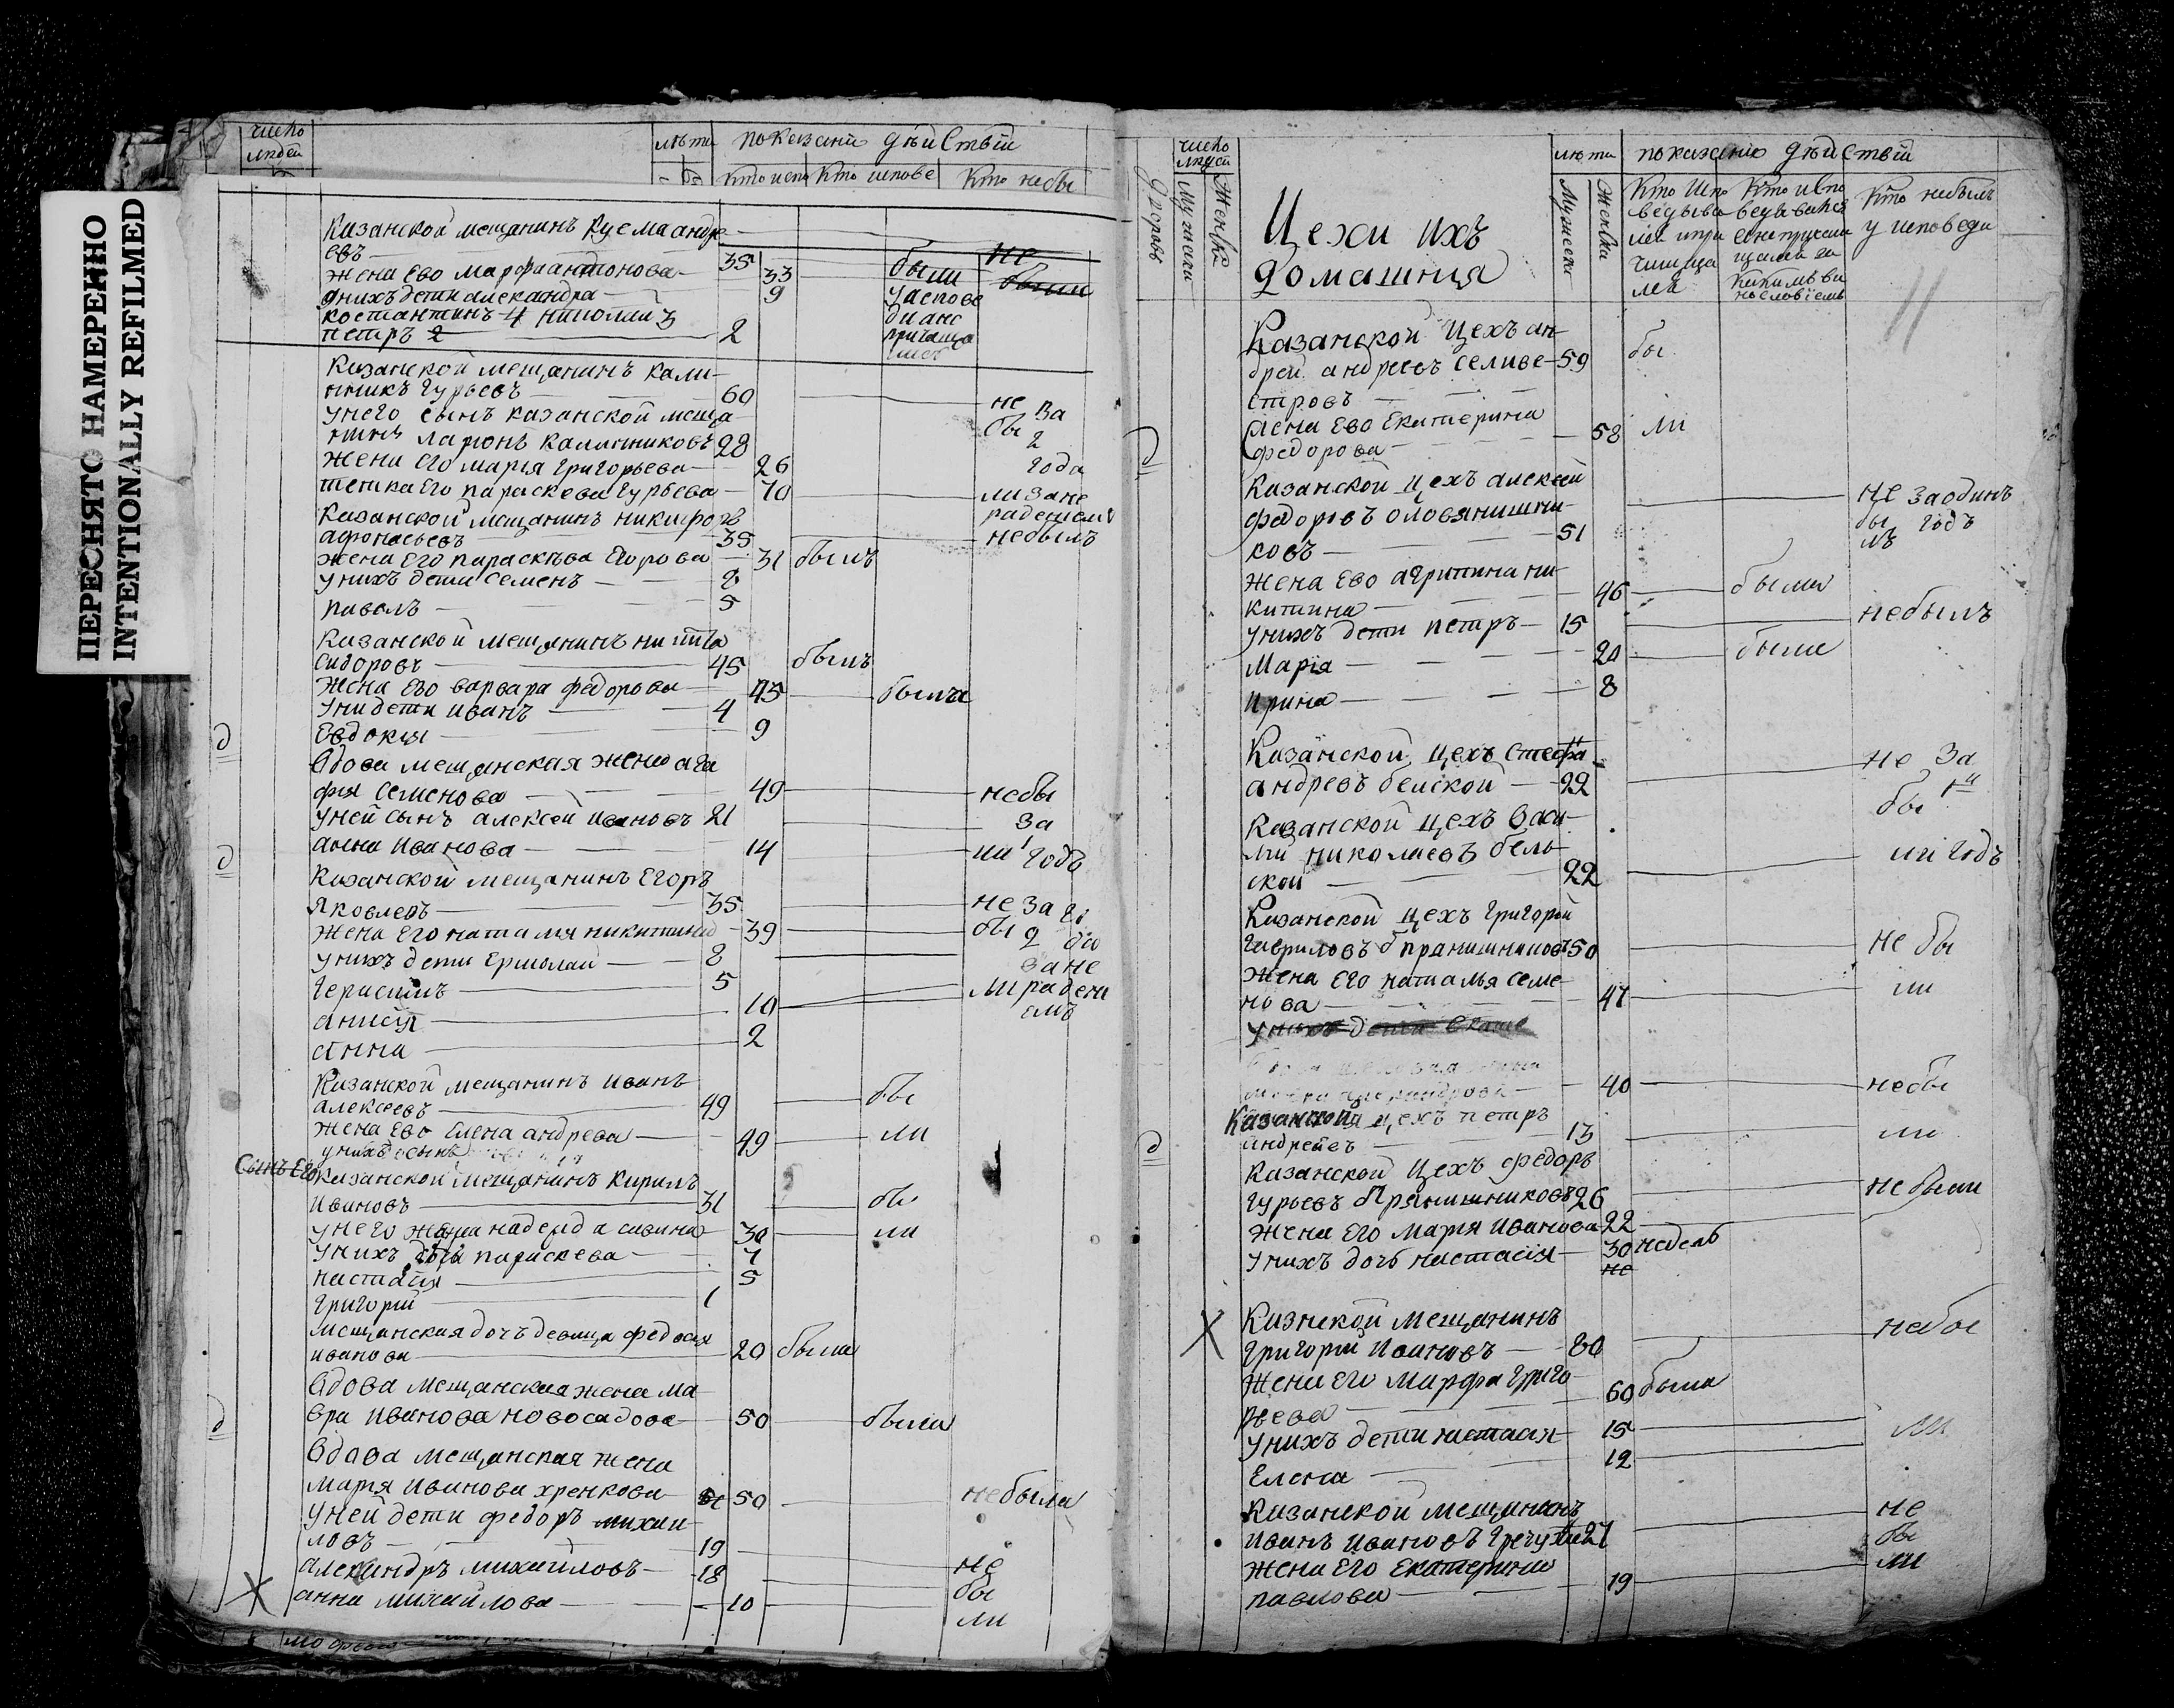 ПЕРЕСНЯТО НАМЕРЕННО
INTENTIONALLY REFILMED
число
людей
лѣта
показанiе дѣйствiй
Кто испо
Кто испове
Кто небы
Казанской мещанинъ Кузма андре
евъ 35
жена ево марфа антонова 33
унихъ дети александра 9
костантинъ 4 николай 3
петръ 2 2
были
уиспове
причаща
лись
не
были
Казанской мещанинъ кали
нникъ гурьевъ 60
унего сынъ казанской меща
нинъ ларионъ калинниковъ 28
жена его марiя григорьева 26
тетка его параскева гурьева 70
не за
бы 2
года
ли зане
радением
Казанской мещанинъ никифоръ
афонасьевъ 35 небылъ
жена его параскѣва егорова 31 былъ
унихъ дети семенъ 8
павелъ 5
Казанской мещанинъ никита
сидоровъ 45 былъ
жена его варвара федорова 45 была
уни дети иванъ 4
Евдокия 9
вдова мещанская жена ага
фия семенова 49 небы
уней сынъ алексей ивановъ 21 за
анна иванова 14 ли 1 годъ
Казанской мещанинъ егоръ
яковлевъ 35 не за
жена его наталия никитина 39 бы 2
унихъ дети ермолай 8 зане
герасимъ 5 ли радени
анисiя 10 емъ
анна 2
Казанской мещанинъ иванъ
алексеевъ 49 бы
жена ево елена андреева 49 ли
унихъ сынъ
сынъ его казанской мещанинъ кирилъ
ивановъ 31 бы
у него жена надежда савина 30 ли
унихъ дочь параскева 7
настасiя 5
григорiй 1
мещанская дочь девица федосiя
иванова 20 была
вдова мещанская жена ма
вра иванова новосадова 50 была
вдова мещанская жена
марiя иванова хренкова 50 небыла
уней дети федоръ михаи
ловъ 19
александръ михаиловъ 18 не
бы
анна михаилова 10 ли
число
людей
дворовъ
Мужески
Женски
Цехи ихъ
домашнiя
лѣта
Мужески
Женски
показанiе дѣйствiй
Кто испо
ведыва
ли и при
чища
лся
Кто испо
ведывался
а не причи
щался за
какимъ ви
нословiемъ
Кто небылъ
у исповеди
Казанской цехъ ан
дрей андреевъ селиве 59 бы
стровъ
жена ево екатерина
федорова 58 ли
Казанской цехъ алексей
федоровъ оловянишни
ковъ 51
не за одинъ
бы годъ
лъ
жена ево агрипина ни
китина 46 была
унихъ дети петръ 15 небылъ
Марiя 20 была
ирина 8
Казанской цехъ стефа
андреевъ бельской 22 не за
бы 1й
Казанской цехъ васи
лий николаевъ бель
ской 22 ли годъ
Казанской цехъ григорей
гавриловъ прянишниковъ 50 не бы
жена его наталья семе
нова 47 ли
унихъ дети
40 небы
Казанской цехъ петръ
андреевъ 13 ли
Казанской цехъ федоръ
гурьевъ прянишниковъ 26 небыли
жена его марiя иванова 22
унихъ дочь настасiя 30 недель
Казнской мещанинъ
григорiй ивановъ 80 небы
жена его марфа григо
рьева 60 была
унихъ дети настасiя 15 ли
елена 12
Казанской мещанинъ
иванъ ивановъ 27
не
бы
жена его екатерина
павлова 19 ли